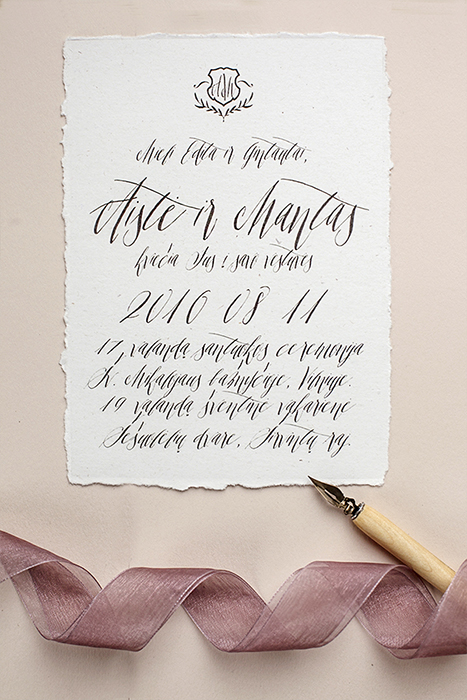 A&M
Mieli Edita ir Gintautai,
Aistė ir Mantas
kviečia Jus į savo vestuves
2016 08 11
17 valandą santuokos ceremonija
Šv. Mikalojaus bažnyčioje, Vilniuje.
19 valandą šventinė vakarienė
dvare, Širvintų raj.